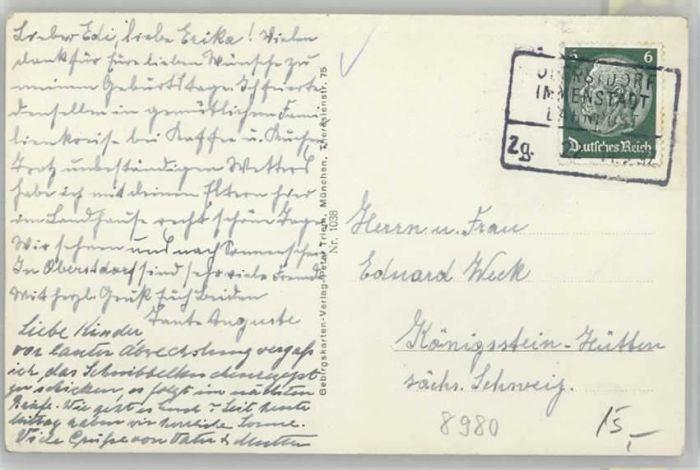 Lieber Edi, liebe Erika! Vielen
Dank für Eure lieben Wünsche zu
meinem Geburtstage. Ich feierte
denselben in gemütlichem Fami-
lienkreise bei Kaffee u. Kuchen
Trotz unbeständigen Wetters
habe ich mit deinen Eltern hier
im Landhause recht schöne Tage.
Wir sehnen uns nach Sonnenschein
In Oberstdorf sind sehr viele Fremde
Mit herzl. Gruß Euch beiden
Tante Auguste
Liebe Kinder
vor lauter Abwechslung vergaß
ich das
zu schicken, es folgt im nächsten
Briefe. Wie geht es Euch? Seit heute
Mittag haben wir herrliche Sonne.
Viele Grüße von Vater & Mutter
Gebirgskarten-Verlag Peter Trien, München, Theresienstr. 75
Nr. 1038
6 6
Deutsches Reich
OBERSTDORF
IMMENSTADT
Zg.
Herrn u. Frau
Eduard Weck
Königsstein-Hütten
sächs. Schweiz.
8980
15,-